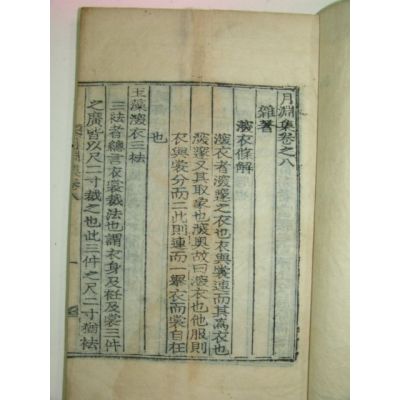 月淵集卷之八
雜著
深衣條解
深衣者深邃之衣也衣與裳連而其爲衣也
深邃又其取象也深奧故曰深衣也他服則
衣與裳分而二此則連而一舉衣而裳自在
也
玉藻深衣三袪
三袪者總言衣裳裁法也謂衣身及袵及裳三件
之廣皆以尺二寸裁之也此三件之尺二寸猶袪